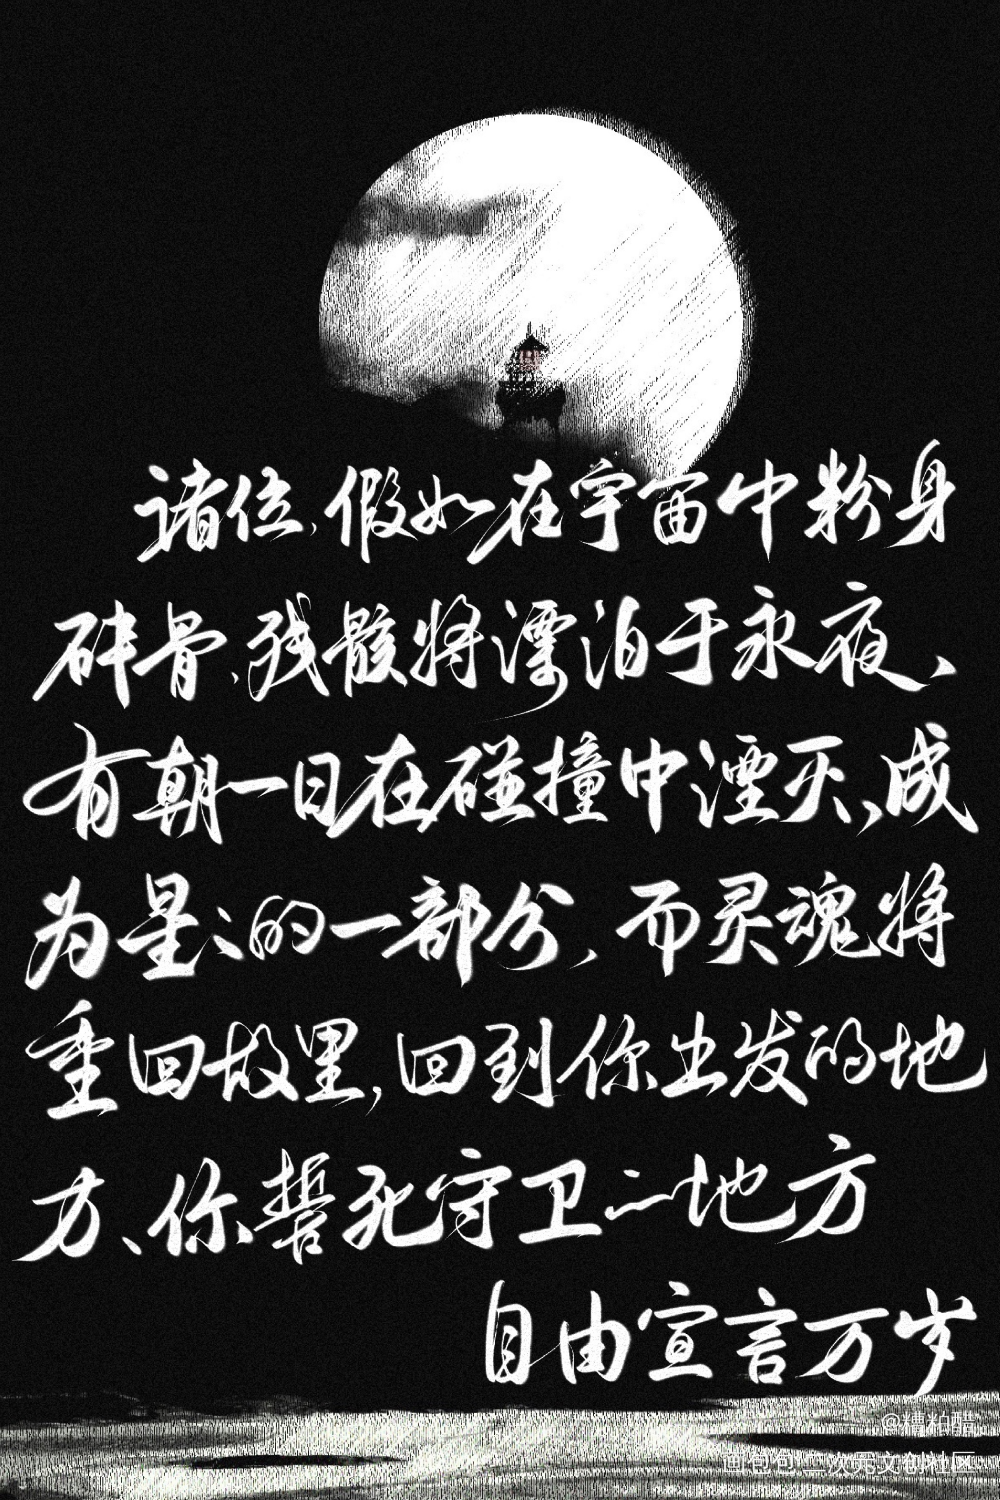 诸位,假如在宇宙中粉身
碎骨、残骸将漂泊于永夜、
有朝一日在碰撞中湮灭、成
为星辰的一部分,而灵魂将
重回故里,回到你出发的地
方、你誓死守卫的地方
自由宣言万岁
@糟粕醋
画包包二次元文创社区